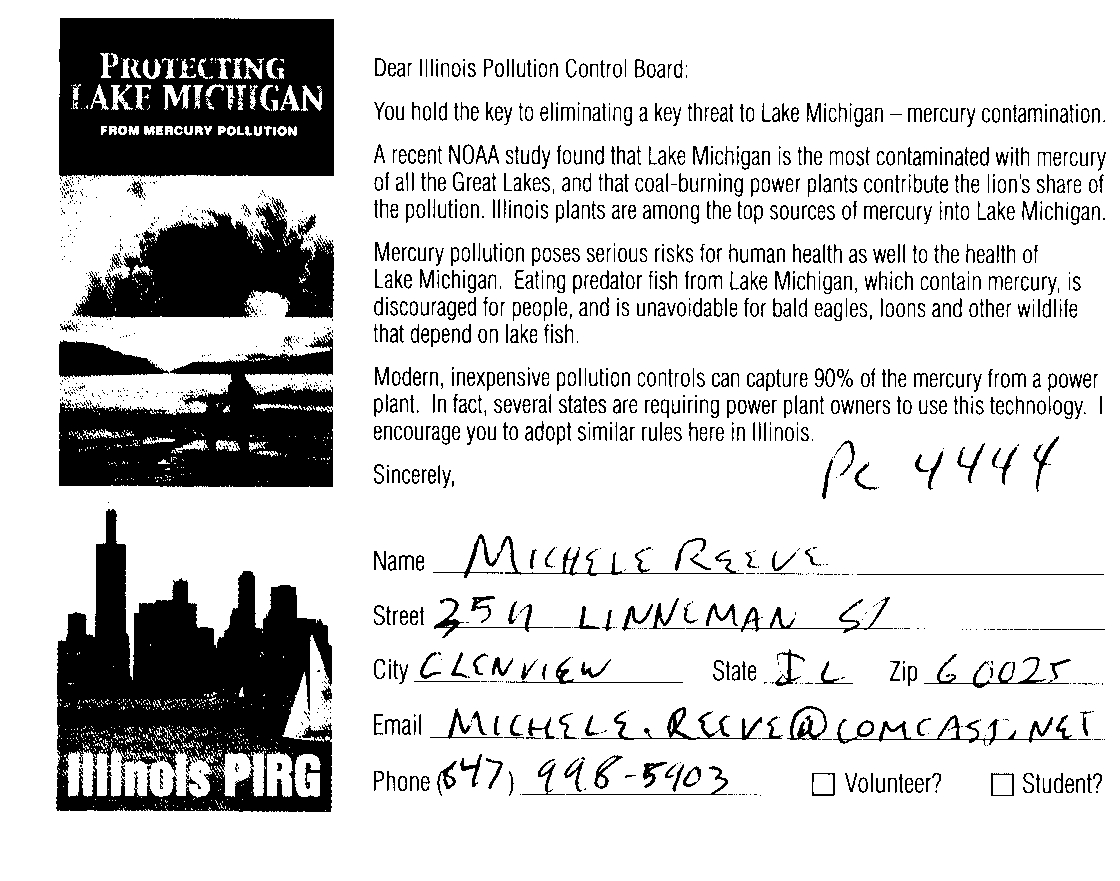 PROTECTING
LAKE MICHIGAN
FROM MERCURY POLLUTION
Illinois PIRG
Dear Illinois Pollution Control Board:
You hold the key to eliminating a key threat to Lake Michigan – mercury contamination.
A recent NOAA study found that Lake Michigan is the most contaminated with mercury
of all the Great Lakes, and that coal-burning power plants contribute the lion's share of
the pollution. Illinois plants are among the top sources of mercury into Lake Michigan.
Mercury pollution poses serious risks for human health as well to the health of
Lake Michigan. Eating predator fish from Lake Michigan, which contain mercury, is
discouraged for people, and is unavoidable for bald eagles, loons and other wildlife
that depend on lake fish.
Modern, inexpensive pollution controls can capture 90% of the mercury from a power
plant. In fact, several states are requiring power plant owners to use this technology. I
encourage you to adopt similar rules here in Illinois.
Sincerely,
PC 4444
Name MICHELE REEVE
Street LINNEMAN ST
City GLENVIEW State IL Zip 60025
Email MICHELE.REEVE@COMCAST.NET
Phone (847) 998-5903 Volunteer? Student?